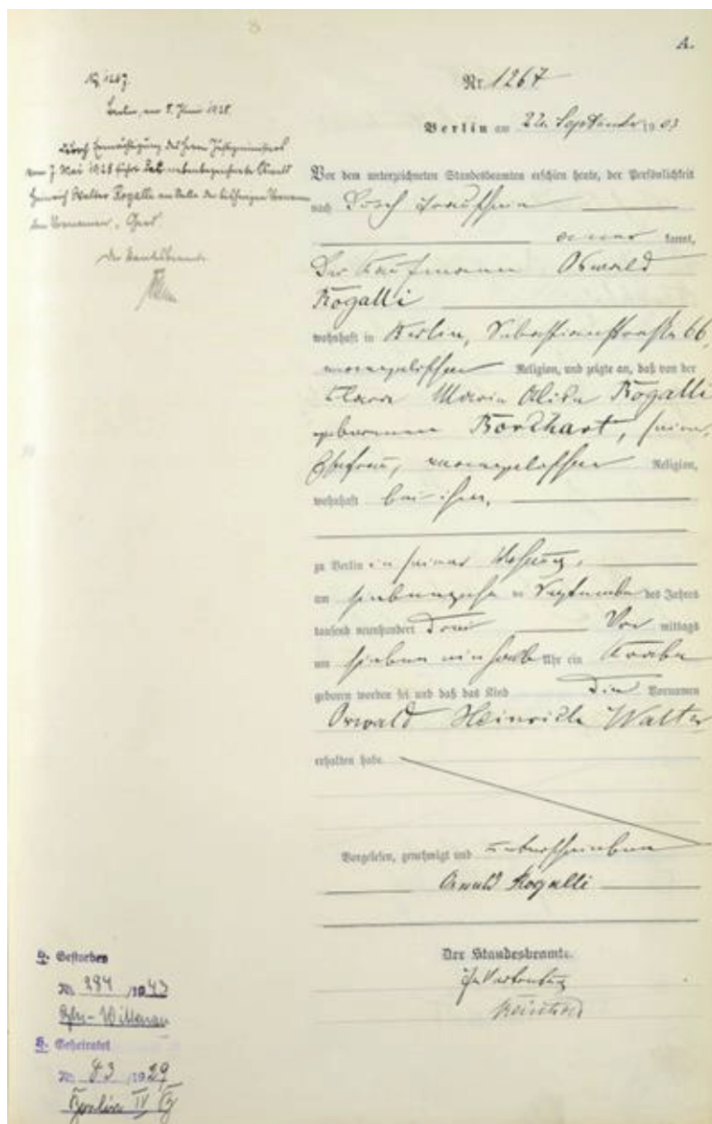 A.
Nr. 1267
Berlin am 22. September 1903
Vor dem unterzeichneten Standesbeamten erschien heute, der Persönlichkeit
nach
kannt,
Der Kaufmann Oswald
Rogalli
wohnhaft in Berlin, Sebastianstraße 66,
evangelischer Religion, und zeigte an, daß von der
Clara Maria Rogalli
geborenen Borchart, seiner
Ehefrau, evangelischer Religion,
wohnhaft bei ihm,
zu Berlin in seiner Wohnung,
am siebenzehn ten September des Jahres
tausend neunhundert drei Vor mittags
um sieben ein halb Uhr ein Knabe
geboren worden sei und daß das Kind die Vornamen
Oswald Heinrich Walter
erhalten habe.
Vorgelesen, genehmigt und unterschrieben
Oswald Rogalli
Der Standesbeamte.
Nr. 1267.
Berlin, am 8. Juni 1928.
Durch Ermächtigung des Herrn Justizministers
vom 7. Mai 1928 führt das nebenbezeichnete Oswald
Heinrich Walter Rogalli an Stelle der bisherigen Vornamen
den Vornamen
Der Standesbeamte.
Gestorben
Nr. 284 /1943
Bln-Wittenau
Geheiratet
Nr. 83 /1929
Berlin IV